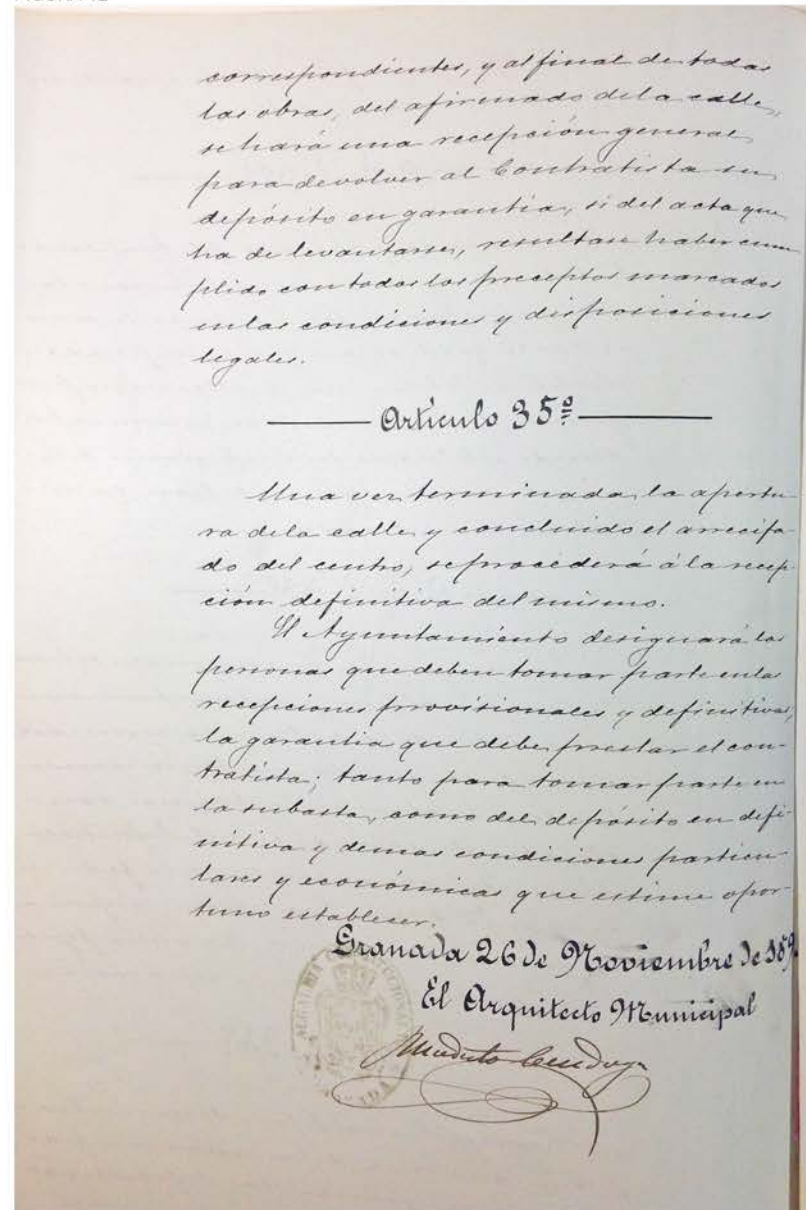 correspondientes, y al final de todas
las obras, del afirmado de la calle,
se hará una recepción general
para devolver al Contratista su
depósito en garantia, si del acta que
ha de levantarse, resultase haber cum
plido con todos los preceptos marcados
en las condiciones y disposiciones
legales.
Artículo 35º
Una vez terminada la apertu-
ra de la calle y concluido el arrecifa-
do del centro, se procederá á la recep-
ción definitiva del mismo.
El Ayuntamiento designará las
personas que deben tomar parte en las
recepciones provisionales y definitivas,
la garantia que debe prestar el con-
tratista; tanto para tomar parte en
la subasta, como del depósito en defi-
nitiva y demas condiciones particu-
lares y económicas que estime opor-
tuno establecer.
Granada 26 de Noviembre de
El Arquitecto Municipal
Modesto Cendoya